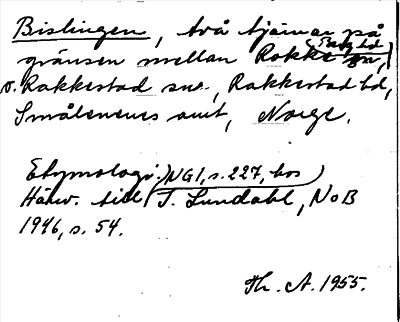 Bislingen, två tjärnar på
gränsen mellan Rokke sn, Berg hd
o. Rakkestad sns., Rakkestad hd,
Smålenenes amt, Norge.
Etymologi:) NG I, s. 227, hos
Hänv. till J. Lundahl, NoB
1946, s. 54.
Th. A. 1955.